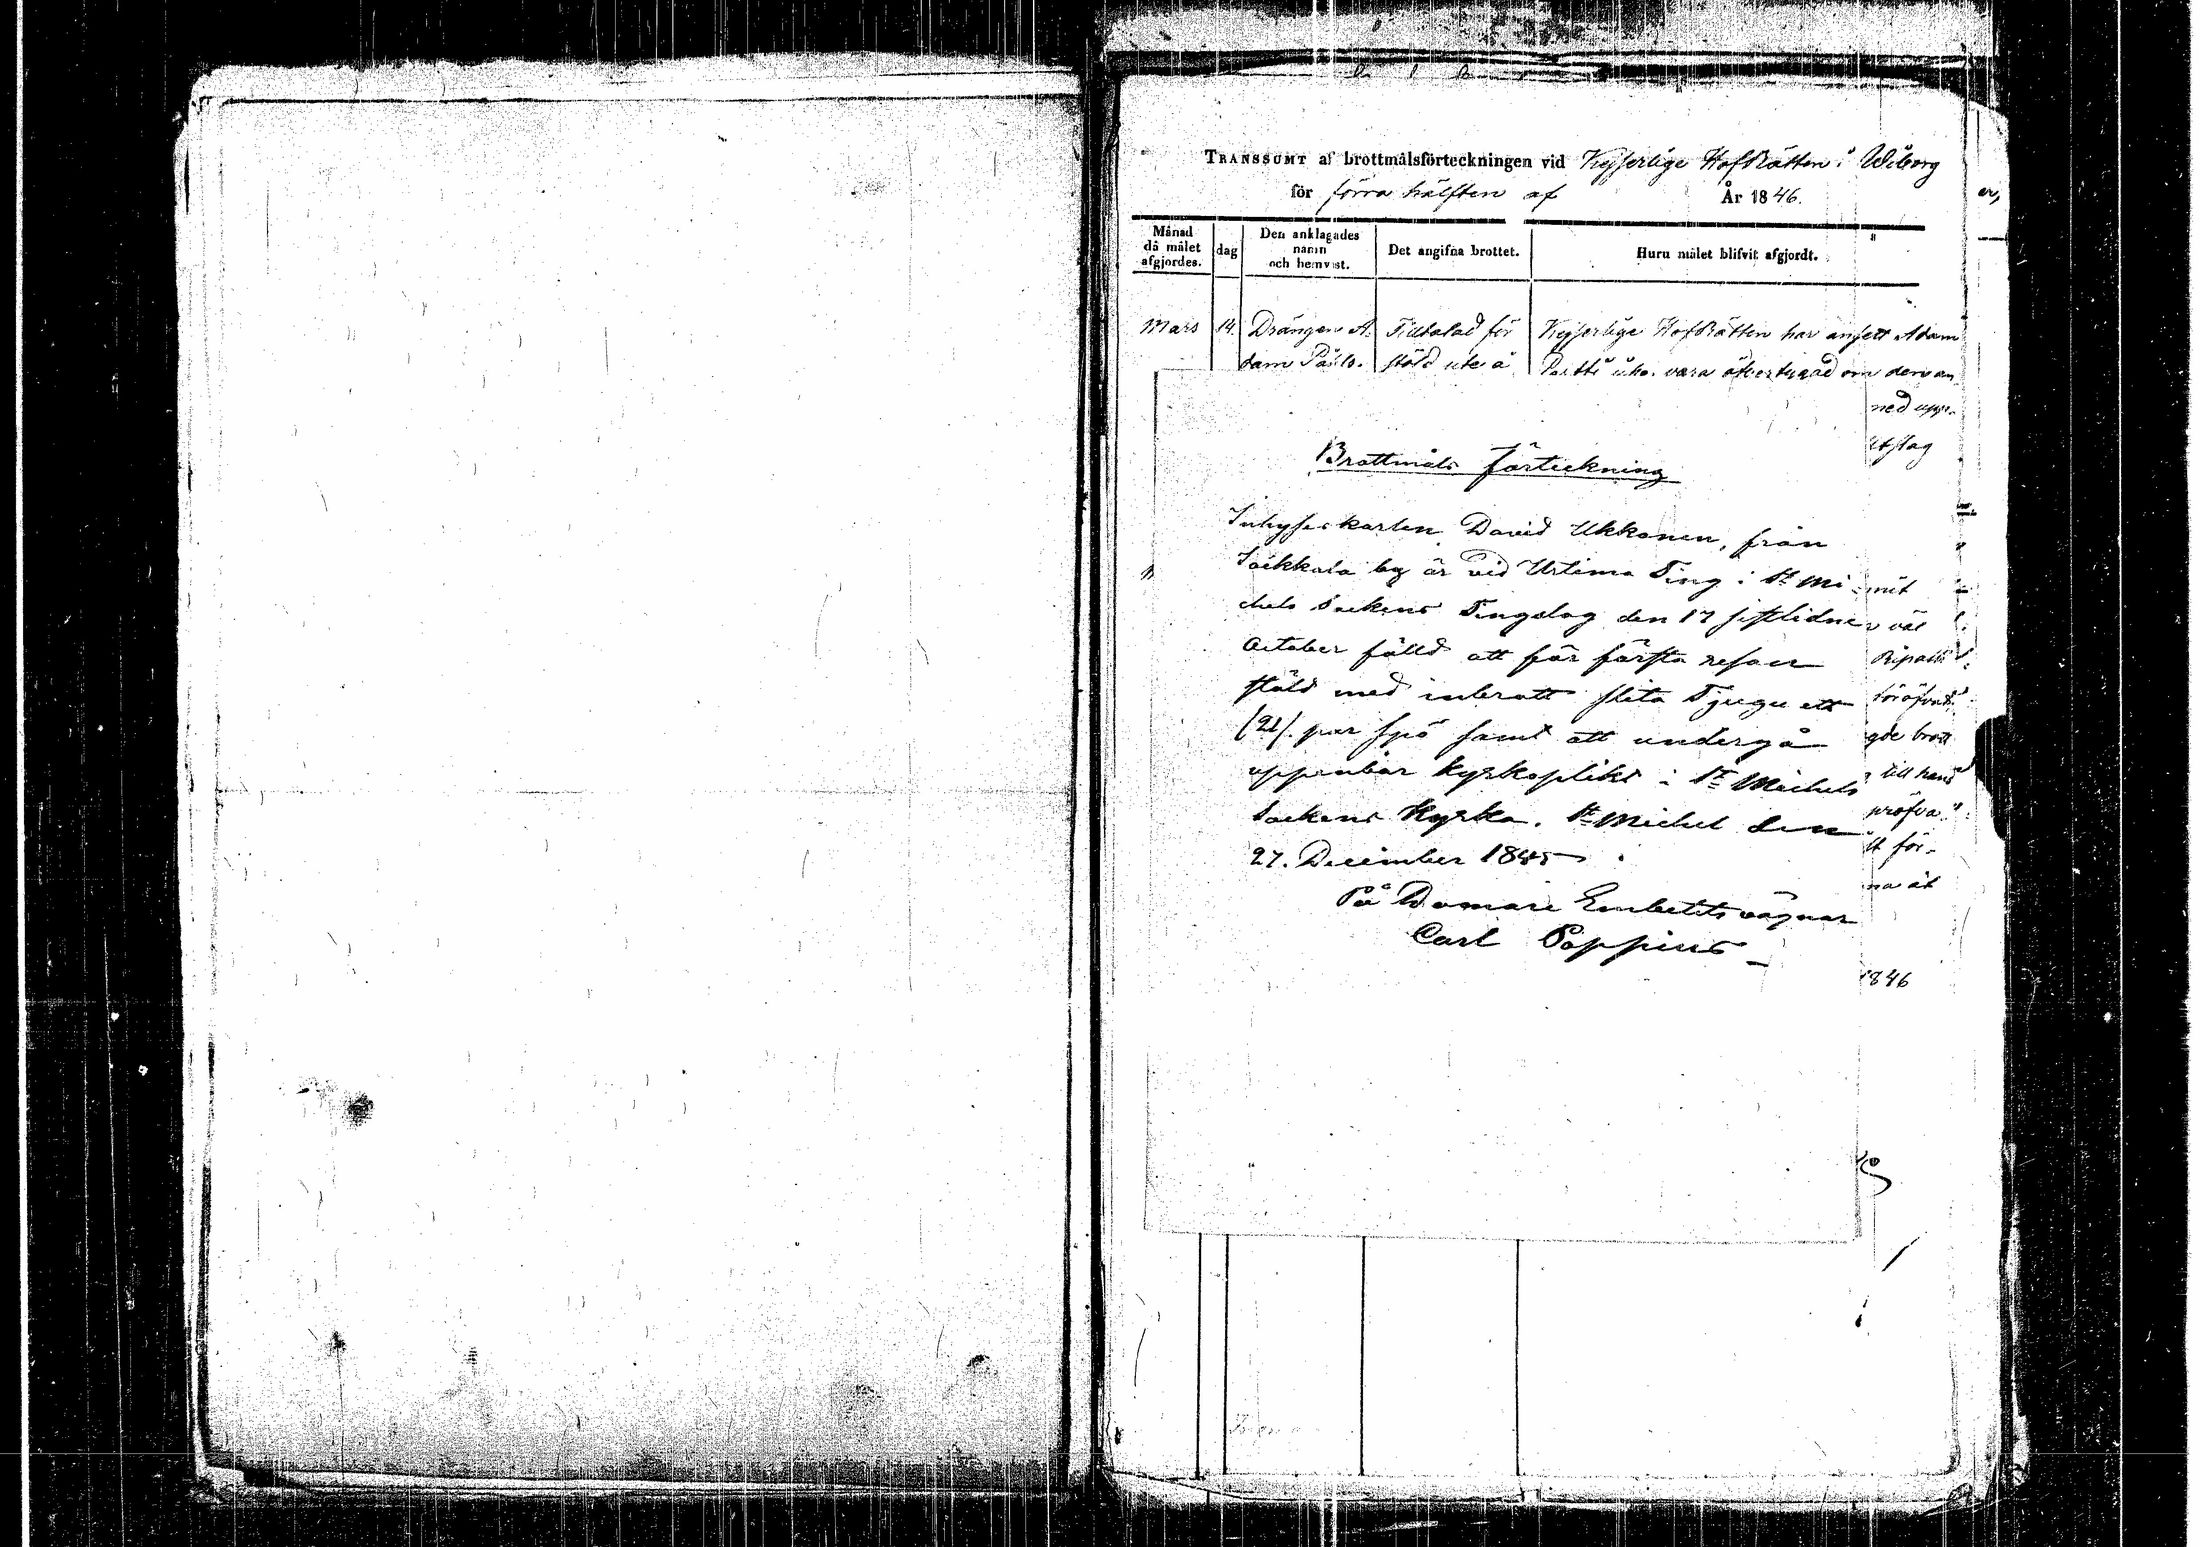 TRANSSUMT af brottmålsförteckningen vid Kejserlige HofRätten i Wiborg
för förra hälften af År 1846.
Månad då målet afgjordes.
dag
Den anklagades namn och hemvist.
Det angifna brottet.
Huru målet blifvit afgjordt.
Mars 14. Drängen A- Tilltalad för Kejserlige HofRätten har ansett Adam
dam stöld ute å vara öfvertygad om den an
ned uppe-
Utslag
Brottmåls Förteckning
Inhyseskarlen David Ukkonen, från
Soikkala by är vid Urtima Ting i St Mi-
chels Sockens Tingslag den 17 sistlidne
October fälld att för första resan
stöld med inbrott slita Tjugu ett
(21) par spö samt att undergå
uppenbar kyrkoplikt i St Michels
Sockens Kyrka. St Michel den
27. December 1845.
På Domare Embetets vägnar
Carl Poppius
väl
gde brott
till hans
pröfva
för-
na åt
1846